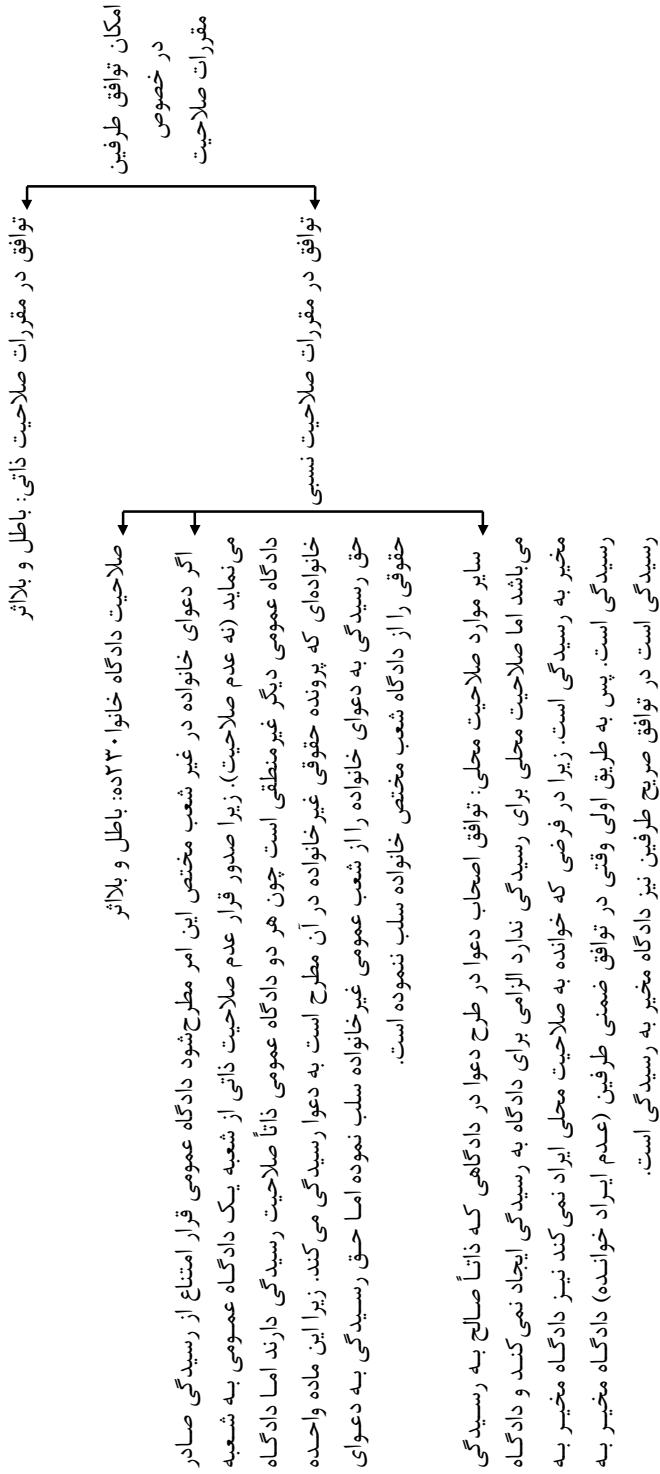 امکان توافق طرفین
در خصوص
مقررات صلاحیت
توافق در مقررات صلاحیت ذاتی: باطل و بلااثر
توافق در مقررات صلاحیت نسبی
صلاحیت دادگاه خانوا۲۳۰ده: باطل و بلااثر
اگر دعوای خانواده در غیر شعب مختص این امر مطرح‌شود دادگاه عمومی قرار امتناع از رسیدگی صادر
می‌نماید (نه عدم صلاحیت). زیرا صدور قرار عدم صلاحیت ذاتی از شعبه یک دادگاه عمومی به شعبه
دادگاه عمومی دیگر غیرمنطقی است چون هر دو دادگاه عمومی ذاتاً صلاحیت رسیدگی دارند اما دادگاه
خانواده‌ای که پرونده حقوقی غیرخانواده در آن مطرح است به دعوا رسیدگی می‌کند. زیرا این ماده واحده
حق رسیدگی به دعوای خانواده را از شعب عمومی غیرخانواده سلب نموده اما حق رسیدگی به دعوای
حقوقی را از دادگاه شعب مختص خانواده سلب ننموده است.
سایر موارد صلاحیت محلی: توافق اصحاب دعوا در طرح دعوا در دادگاهی که ذاتاً صالح به رسیدگی
می‌باشد اما صلاحیت محلی برای رسیدگی ندارد الزامی برای دادگاه به رسیدگی ایجاد نمی‌کند و دادگاه
مخیر به رسیدگی است. زیرا در فرضی که خوانده به صلاحیت محلی ایراد نمی‌کند نیز دادگاه مخیر به
رسیدگی است. پس به طریق اولی وقتی در توافق ضمنی طرفین (عدم ایراد خوانده) دادگاه مخیر به
رسیدگی است در توافق صریح طرفین نیز دادگاه مخیر به رسیدگی است.